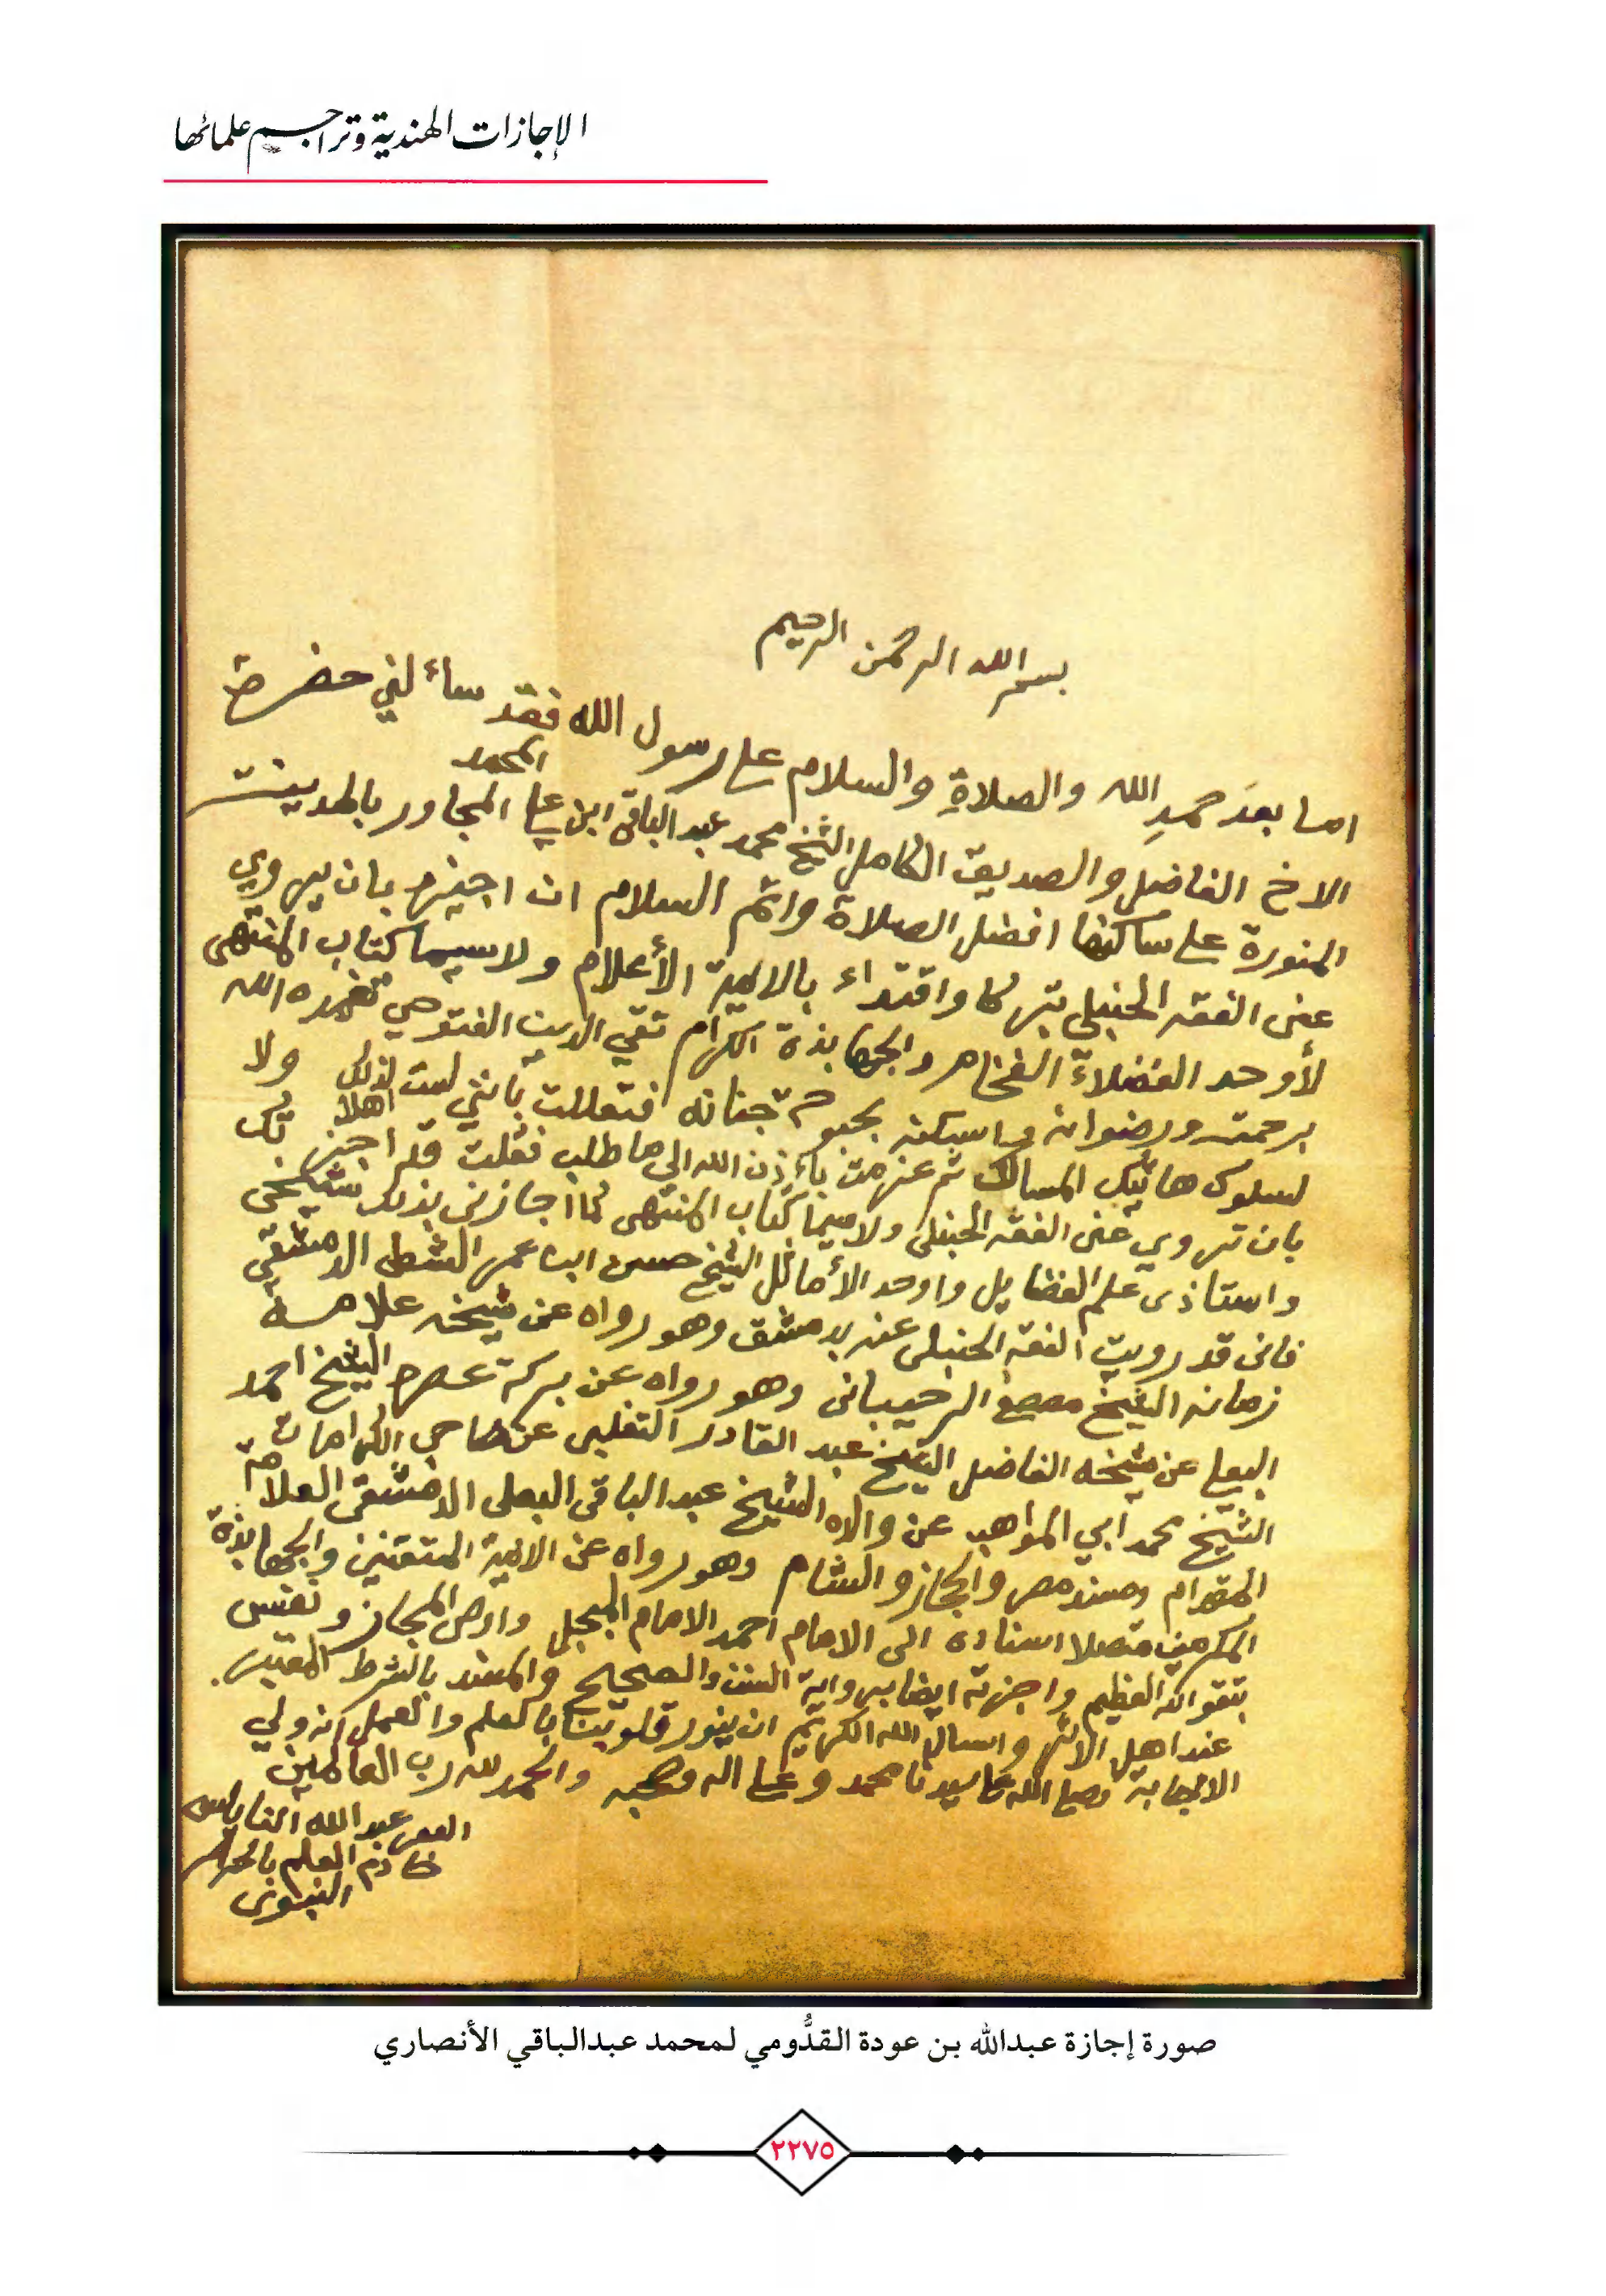 الإجازات الهندية وتراجم علمائها
بسم الله الرحمن الرحيم
اما بعد حمدِ الله والصلاةِ والسلام على رسول الله فقد ساءلني حضرة
الاخ الفاضل والصديق الكامل الشيخ محمد عبد الباقي ابن علي المحمد المجاور بالمدينة
المنورة على ساكنها افضل الصلاة واتم السلام ان اجيزه بان يروي
عني الفقه الحنبلي تبركا واقتداء بالايمة الأعلام ولاسيما كتاب المنتهى
لأوحد الفضلاء الفخام والجهابذة الكرام تقي الدين الفتوحي تغمده الله
برحمته ورضوانه واسكنه بحبوحة جنانه فتعللت بأنني لست لذلك اهلا ولا
لسلوك هاتيك المسالك ثم عزمت باءذن الله الى ما طلب فقلت قد اجزتك
بان تروي عني الفقه الحنبلي ولاسيما كتاب المنتهى كما اجازني بذلك شيخي
واستاذي علم الفضايل واوحد الأماثل الشيخ حسن ابن عمر الشطي الدمشقي
فانى قد رويت الفقه الحنبلي عنه بدمشق وهو رواه عن شيخه علامة
زمانه الشيخ مصطفى الرحيباني وهو رواه عن بركة عصره الشيخ احمد
البعلي عن شيخه الفاضل الشيخ عبد القادر التغلبي عن صاحب الكرامات
الشيخ محمد ابي المواهب عن والده الشيخ عبد الباقي البعلي الدمشقي العلامة
الهمام ومسند مصر والحجاز والشام وهو رواه عن الايمة المتقنين والجهابذة
المكرمين متصلا اسناده الى الامام احمد الامام المبجل واوصي المجاز ونفسي
بتقوى الله العظيم واجزته ايضا برواية السنن والصحيح والمسند بالشرط المعتبر
عند اهل الاثر واسال الله الكريم ان ينور قلوبنا بالعلم والعمل انه ولي
الاجابة وصلى الله على سيدنا محمد وعلى اله وصحبه والحمد لله رب العالمين
عبد الله النابلسي
خادم العلم بالحرم
النبوى
صورة إجازة عبدالله بن عودة القدُّومي لمحمد عبدالباقي الأنصاري
٢٢٧٥